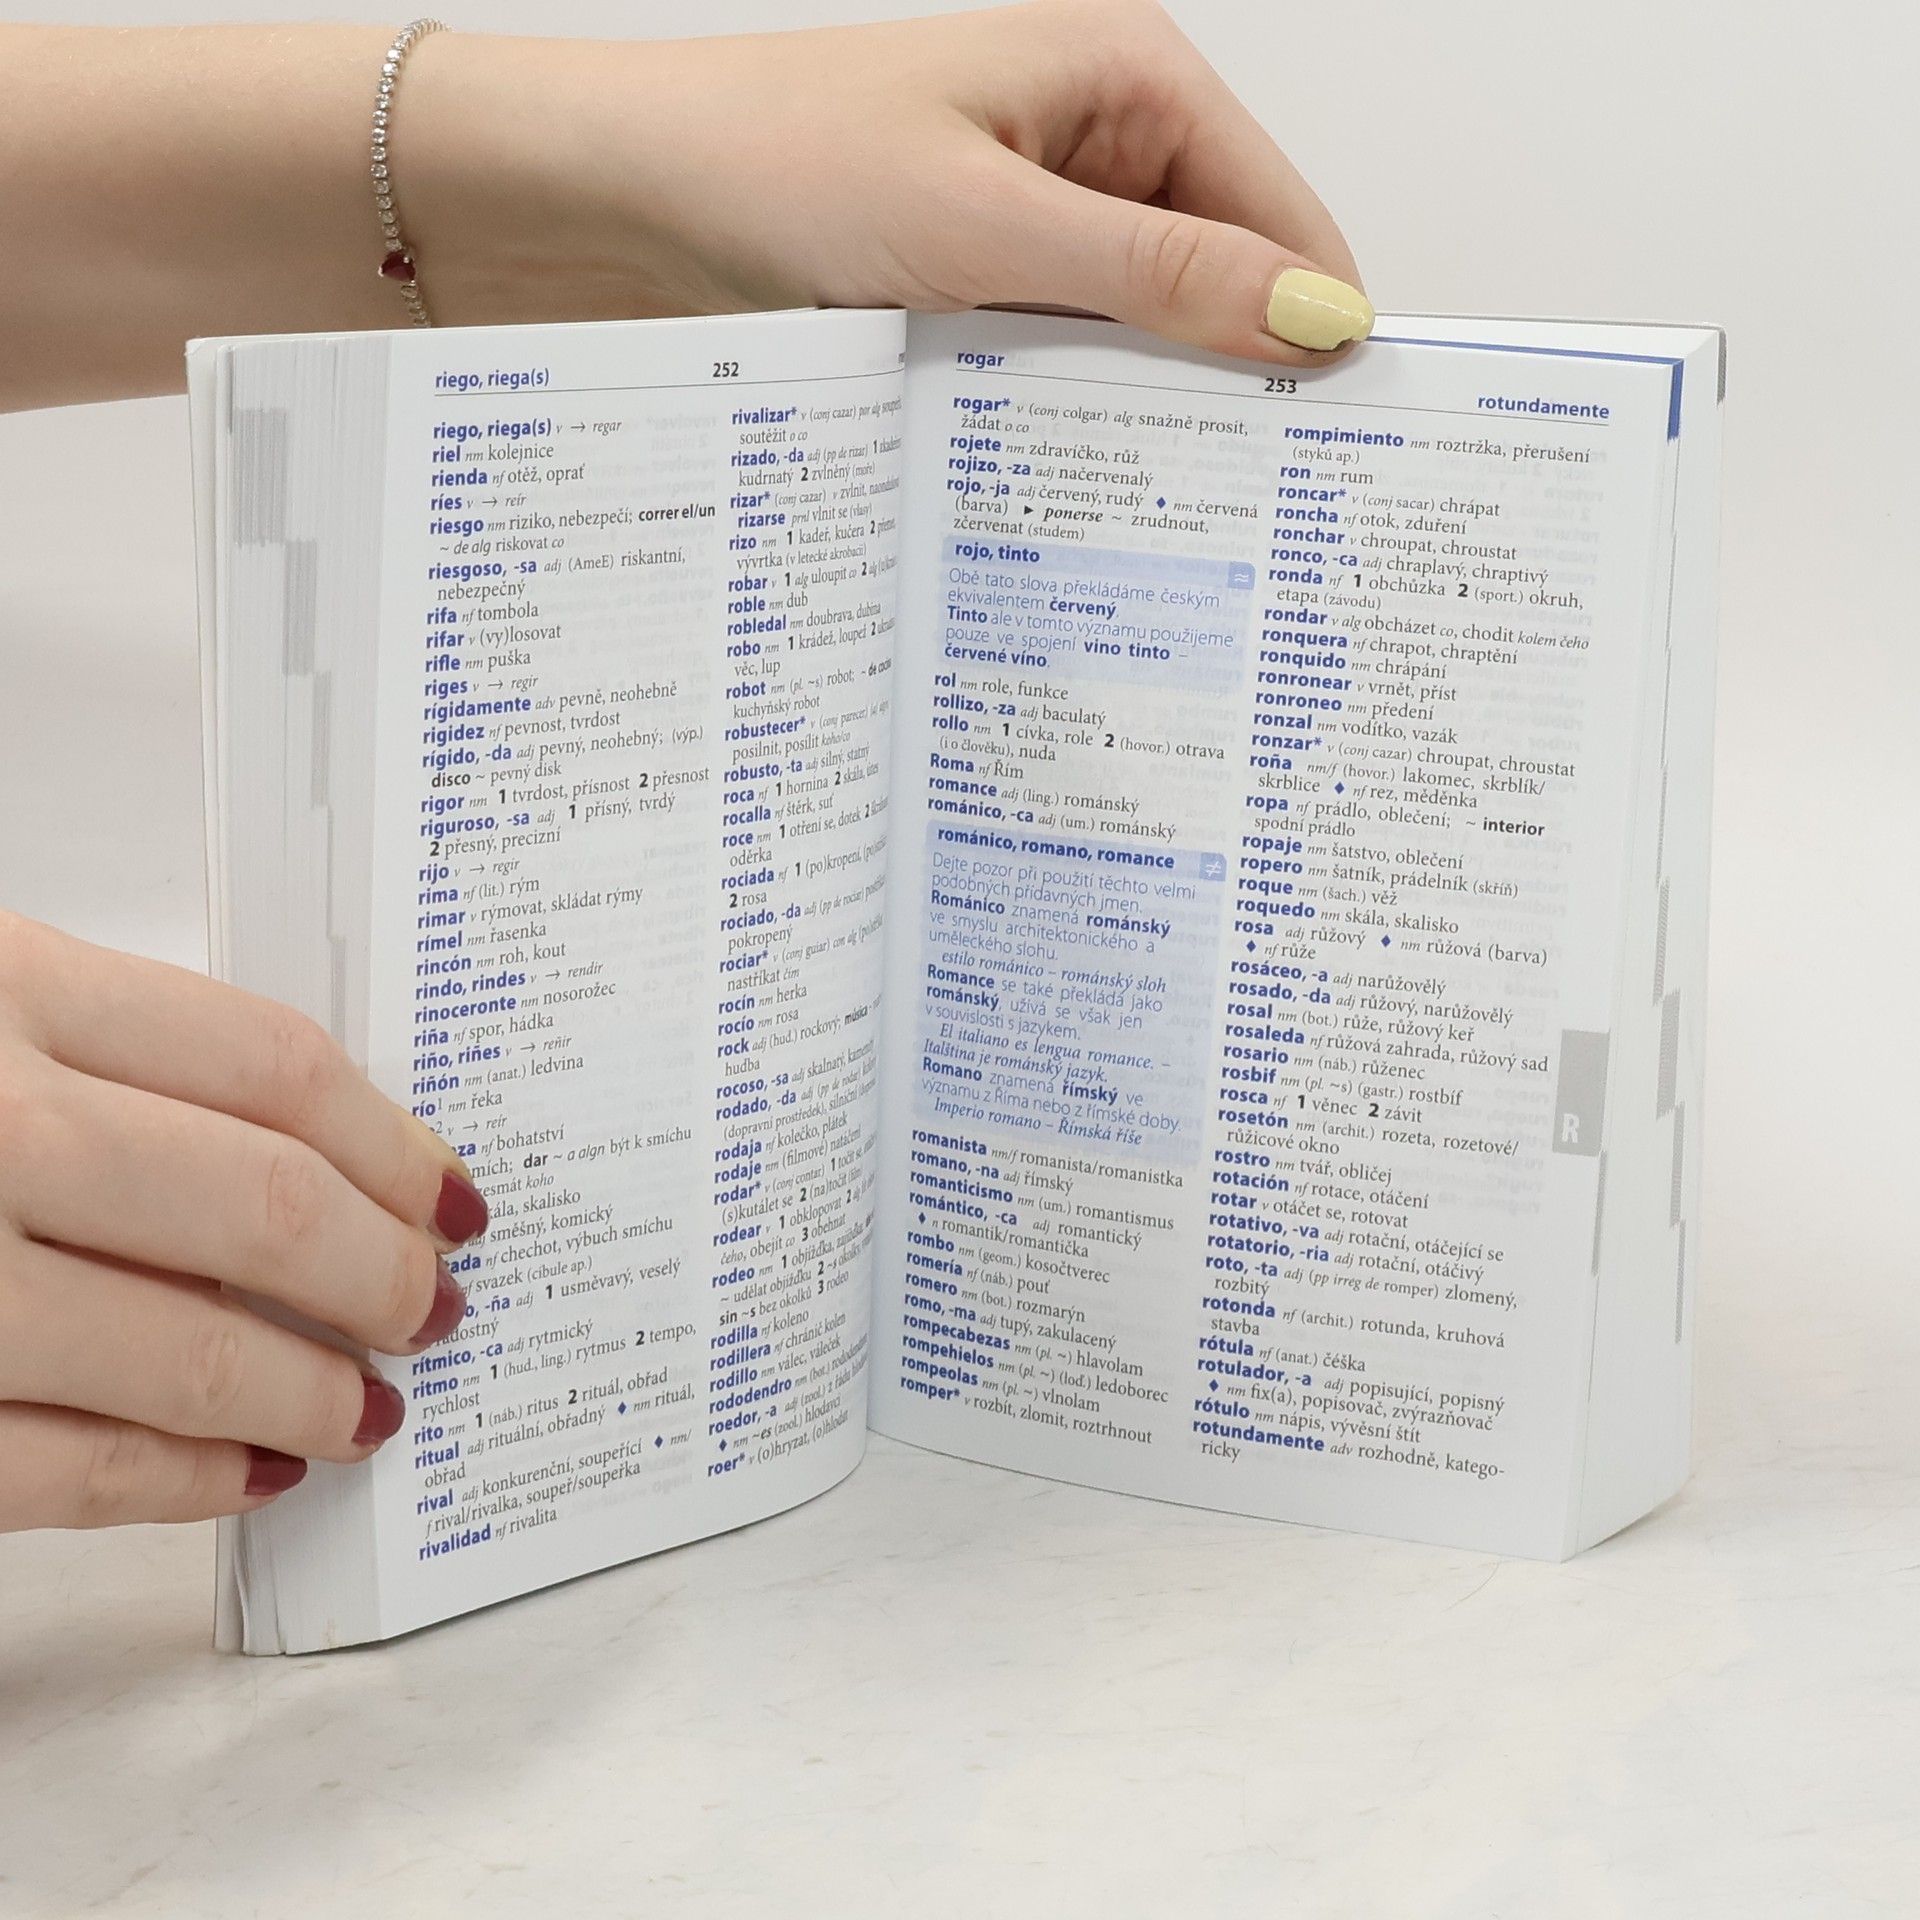 riego, riega(s) 252
riego, riega(s) v → regar
riel nm kolejnice
rienda nf otěž, oprať
ríes v → reír
riesgo nm riziko, nebezpečí; correr el/un
~ de alg riskovat co
riesgoso, -sa adj (AmeE) riskantní,
nebezpečný
rifa nf tombola
rifar v (vy)losovat
rifle nm puška
riges v → regir
rígidamente adv pevně, neohebně
rigidez nf pevnost, tvrdost
rígido, -da adj pevný, neohebný; (výp.)
disco ~ pevný disk
rigor nm 1 tvrdost, přísnost 2 přesnost
riguroso, -sa adj 1 přísný, tvrdý
2 přesný, precizní
rijo v → regir
rima nf (lit.) rým
rimar v rýmovat, skládat rýmy
rímel nm řasenka
rincón nm roh, kout
rindo, rindes v → rendir
rinoceronte nm nosorožec
riña nf spor, hádka
riño, riñes v → reñir
riñón nm (anat.) ledvina
río1 nm řeka
2 v → reír
nf bohatství
dar ~ a algn být k smíchu
koho
skalisko
směšný, komický
nf chechot, výbuch smíchu
nf svazek (cibule ap.)
-ña adj 1 usměvavý, veselý
rítmico, -ca adj rytmický
ritmo nm 1 (hud., ling.) rytmus 2 tempo,
rychlost
rito nm 1 (náb.) ritus 2 rituál, obřad
ritual adj rituální, obřadný ♦ nm rituál,
obřad
rival adj konkurenční, soupeřící ♦ nm/
f rival/rivalka, soupeř/soupeřka
rivalidad nf rivalita
rivalizar* v (conj cazar) por alg
soutěžit o co
rizado, -da adj (pp de rizar) 1
kudrnatý 2 zvlněný (moře)
rizar* (conj cazar) v zvlnit,
rizarse prnl vlnit se (vlasy)
rizo nm 1 kadeř, kučera 2
vývrtka (v letecké akrobacii)
robar v 1 alg uloupit co 2 alg
roble nm dub
robledal nm doubrava, dubina
robo nm 1 krádež, loupež 2
věc, lup
robot nm (pl. ~s) robot;
kuchyňský robot
robustecer* v (conj parecer)
posilnit, posílit koho/co
robusto, -ta adj silný, statný
roca nf 1 hornina 2 skála, útes
rocalla nf štěrk, suť
roce nm 1 otření se, dotek 2
oděrka
rociada nf 1 (po)kropení,
2 rosa
rociado, -da adj (pp de rociar)
pokropený
rociar* v (conj guiar) con alg
nastříkat čím
rocín nm herka
rocío nm rosa
rock adj (hud.) rockový; música
hudba
rocoso, -sa adj skalnatý, kamenitý
rodado, -da adj (pp de rodar)
(dopravní prostředek), silniční
rodaja nf kolečko, plátek
rodaje nm (filmové) natáčení
rodar* v (conj contar) 1 točit se,
(s)kutálet se 2 (na)točit (film)
rodear v 1 obklopovat 2 alg
čeho, obejít co 3 obehnat
rodeo nm 1 objížďka, zajížďka;
~ udělat objížďku 2
sin ~s bez okolků 3 rodeo
rodilla nf koleno
rodillera nf chránič kolen
rodillo nm válec, váleček
rododendro nm (bot.) rododendron
roedor, -a adj (zool.) z řádu
♦ nm ~es (zool.) hlodavci
roer* v (o)hryzat, (o)hlodat
rogar 253 rotundamente
rogar* v (conj colgar) alg snažně prosit,
žádat o co
rojete nm zdravíčko, růž
rojizo, -za adj načervenalý
rojo, -ja adj červený, rudý ♦ nm červená
(barva) ► ponerse ~ zrudnout,
zčervenat (studem)
rojo, tinto ≈
Obě tato slova překládáme českým
ekvivalentem červený.
Tinto ale v tomto významu použijeme
pouze ve spojení vino tinto –
červené víno.
rol nm role, funkce
rollizo, -za adj baculatý
rollo nm 1 cívka, role 2 (hovor.) otrava
(i o člověku), nuda
Roma nf Řím
romance adj (ling.) románský
románico, -ca adj (um.) románský
románico, romano, romance ≠
Dejte pozor při použití těchto velmi
podobných přídavných jmen.
Románico znamená románský
ve smyslu architektonického a
uměleckého slohu.
estilo románico – románský sloh
Romance se také překládá jako
románský, užívá se však jen
v souvislosti s jazykem.
El italiano es lengua romance. –
Italština je románský jazyk.
Romano znamená římský ve
významu z Říma nebo z římské doby.
Imperio romano – Římská říše
romanista nm/f romanista/romanistka
romano, -na adj římský
romanticismo nm (um.) romantismus
romántico, -ca adj romantický
♦ n romantik/romantička
rombo nm (geom.) kosočtverec
romería nf (náb.) pouť
romero nm (bot.) rozmarýn
romo, -ma adj tupý, zakulacený
rompecabezas nm (pl. ~) hlavolam
rompehielos nm (pl. ~) (loď.) ledoborec
rompeolas nm (pl. ~) vlnolam
romper* v rozbít, zlomit, roztrhnout
rompimiento nm roztržka, přerušení
(styků ap.)
ron nm rum
roncar* v (conj sacar) chrápat
roncha nf otok, zduření
ronchar v chroupat, chroustat
ronco, -ca adj chraplavý, chraptivý
ronda nf 1 obchůzka 2 (sport.) okruh,
etapa (závodu)
rondar v alg obcházet co, chodit kolem čeho
ronquera nf chrapot, chraptění
ronquido nm chrápání
ronronear v vrnět, příst
ronroneo nm předení
ronzal nm vodítko, vazák
ronzar* v (conj cazar) chroupat, chroustat
roña nm/f (hovor.) lakomec, skrblík/
skrblice ♦ nf rez, měděnka
ropa nf prádlo, oblečení; ~ interior
spodní prádlo
ropaje nm šatstvo, oblečení
ropero nm šatník, prádelník (skříň)
roque nm (šach.) věž
roquedo nm skála, skalisko
rosa adj růžový ♦ nm růžová (barva)
♦ nf růže
rosáceo, -a adj narůžovělý
rosado, -da adj růžový, narůžovělý
rosal nm (bot.) růže, růžový keř
rosaleda nf růžová zahrada, růžový sad
rosario nm (náb.) růženec
rosbif nm (pl. ~s) (gastr.) rostbíf
rosca nf 1 věnec 2 závit
rosetón nm (archit.) rozeta, rozetové/
růžicové okno
rostro nm tvář, obličej
rotación nf rotace, otáčení
rotar v otáčet se, rotovat
rotativo, -va adj rotační, otáčející se
rotatorio, -ria adj rotační, otáčivý
roto, -ta adj (pp irreg de romper) zlomený,
rozbitý
rotonda nf (archit.) rotunda, kruhová
stavba
rótula nf (anat.) čéška
rotulador, -a adj popisující, popisný
♦ nm fix(a), popisovač, zvýrazňovač
rótulo nm nápis, vývěsní štít
rotundamente adv rozhodně, katego-
ricky
R